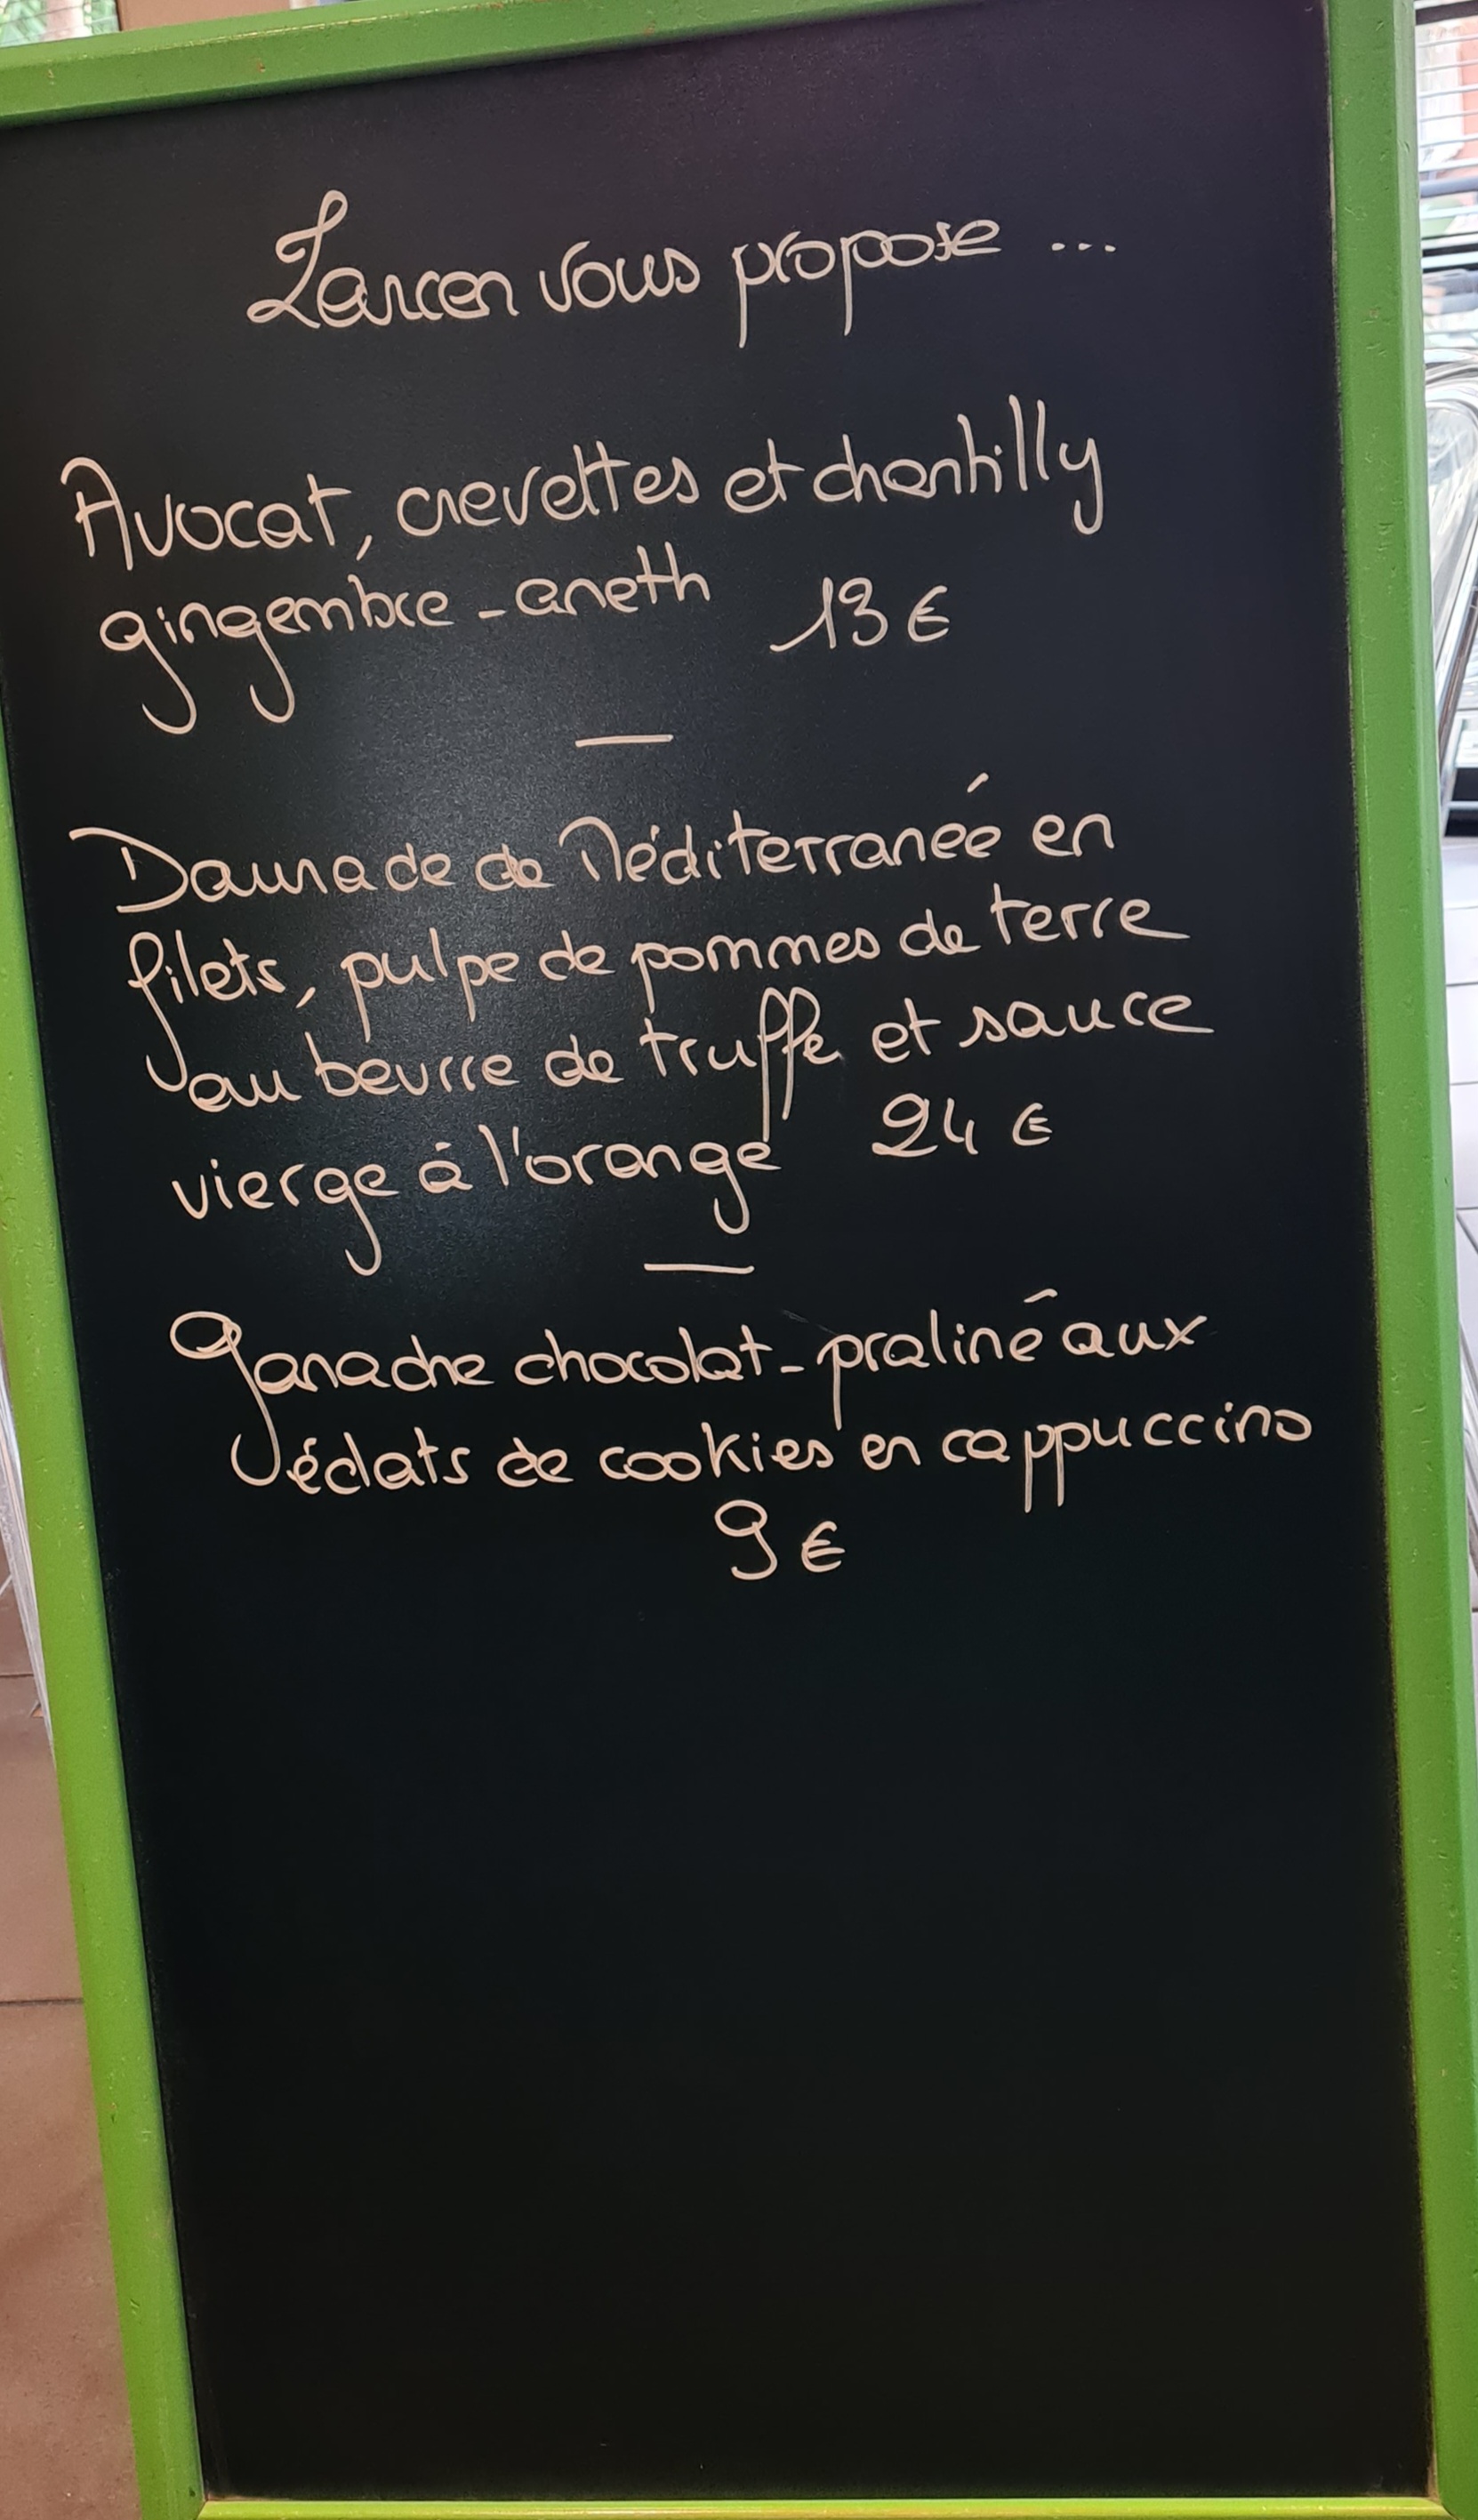 Larcen vous propose ...
Avocat, crevettes et chantilly
gingembre - aneth 13 €
Daurade de Méditerranée en
filets, pulpe de pommes de terre
au beurre de truffe et sauce
vierge à l'orange 24 €
Ganache chocolat - praliné aux
éclats de cookies en cappuccino
9 €